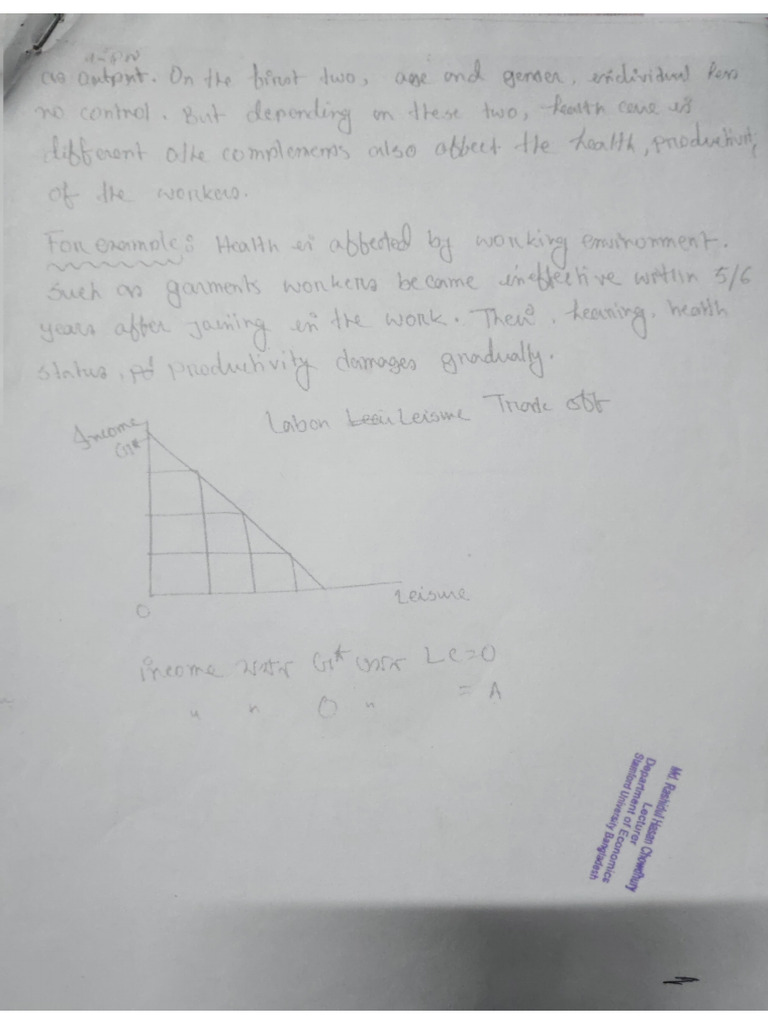 as output. On the first two, age and gender, individual has
no control. But depending on these two, health care is
different othe complements also affect the health, productivity,
of the workers.
For example: Health is affected by working environment.
Such as garments workers became ineffective within 5/6
years after joining in the work. Their, hearing, health
status, productivity damages gradually.
Labor Leisure Trade off
Income
G*
O
Leisure
income যখন G* তখন Le=0
" " O " = A
Md. Rashidul Hasan Chowdhury
Lecturer
Department of Economics
Stamford University Bangladesh